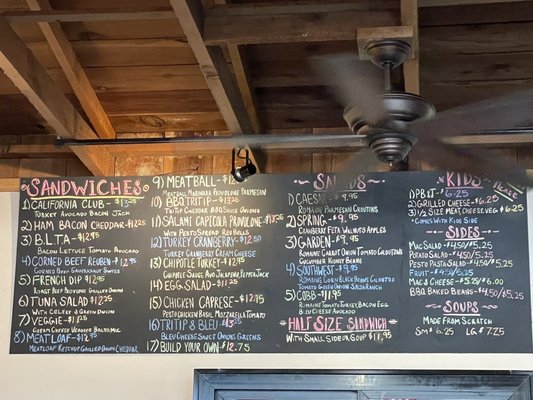 SANDWICHES
1) CALIFORNIA CLUB - $13.25
TURKEY AVOCADO BACON JACK
2) HAM BACON CHEDDAR $12.25
3) B.L.T.A - $12.95
BACON LETTUCE TOMATO AVOCADO
4) CORNED BEEF REUBEN - $12.95
CORNED BEEF SAUERKRAUT SWISS
5) FRENCH DIP $12.95
ROAST BEEF
6) TUNA SALAD $12.25
WITH CELERY & GREEN ONION
7) VEGGIE - $11.75
CREAM CHEESE VEGGIES BALSAMIC
8) MEATLOAF - $12.95
MEATLOAF KETCHUP GRILLED ONION CHEDDAR
9) MEATBALL - $12.25
MEATBALL MARINARA PROVOLONE PARMESIAN
10) BBQ TRITIP - $13.25
TRITIP CHEDDAR BBQ SAUCE ONIONS
11) SALAMI CAPICOLA PROVILONE - $11.25
WITH PESTO SPREAD RED BELLS
12) TURKEY CRANBERRY - $12.50
TURKEY CRANBERRY CREAM CHEESE
13) CHIPOTLE TURKEY - $12.95
CHIPOTLE SAUCE AVO JALAPENO PEPPER JACK
14) EGG SALAD - $11.25
15) CHICKEN CAPRESE - $12.95
PESTO CHICKEN BASIL MOZZARELLA TOMATO
16) TRITIP & BLEU
BLEU CHEESE SAUCE ONIONS GREENS
17) BUILD YOUR OWN - $12.75
SALADS
1) CAESAR
ROMAINE PARMESIAN CROUTONS
2) SPRING - $9.95
CRANBERRY FETA WALNUTS APPLES
3) GARDEN - $9.95
ROMAINE CARROT ONION TOMATO CROUTON
CUCUMBER KIDNEY BEANS
4) SOUTHWEST - $9.95
ROMAINE CORN BLACK BEANS CILANTRO
TOMATO GREEN ONION SALSA RANCH
5) COBB - $11.95
ROMAINE TOMATO TURKEY BACON EGG
BLEU CHEESE AVOCADO
HALF SIZE SANDWICH
WITH SMALL SIDE OR SOUP $11.95
KIDS
1) PB&J - $6.25
2) GRILLED CHEESE - $6.25
3) 1/2 SIZE MEAT, CHEESE, VEG - $6.25
COMES WITH KIDS SIDE
SIDES
MAC SALAD - $4.50/$5.25
POTATO SALAD - $4.50/$5.25
PESTO PASTA SALAD - $4.50/$5.25
FRUIT - $4.50/$5.25
MAC & CHEESE - $5.25/$6.00
BBQ BAKED BEANS - $4.50/$5.25
SOUPS
MADE FROM SCRATCH
SM $6.25 LG $7.25